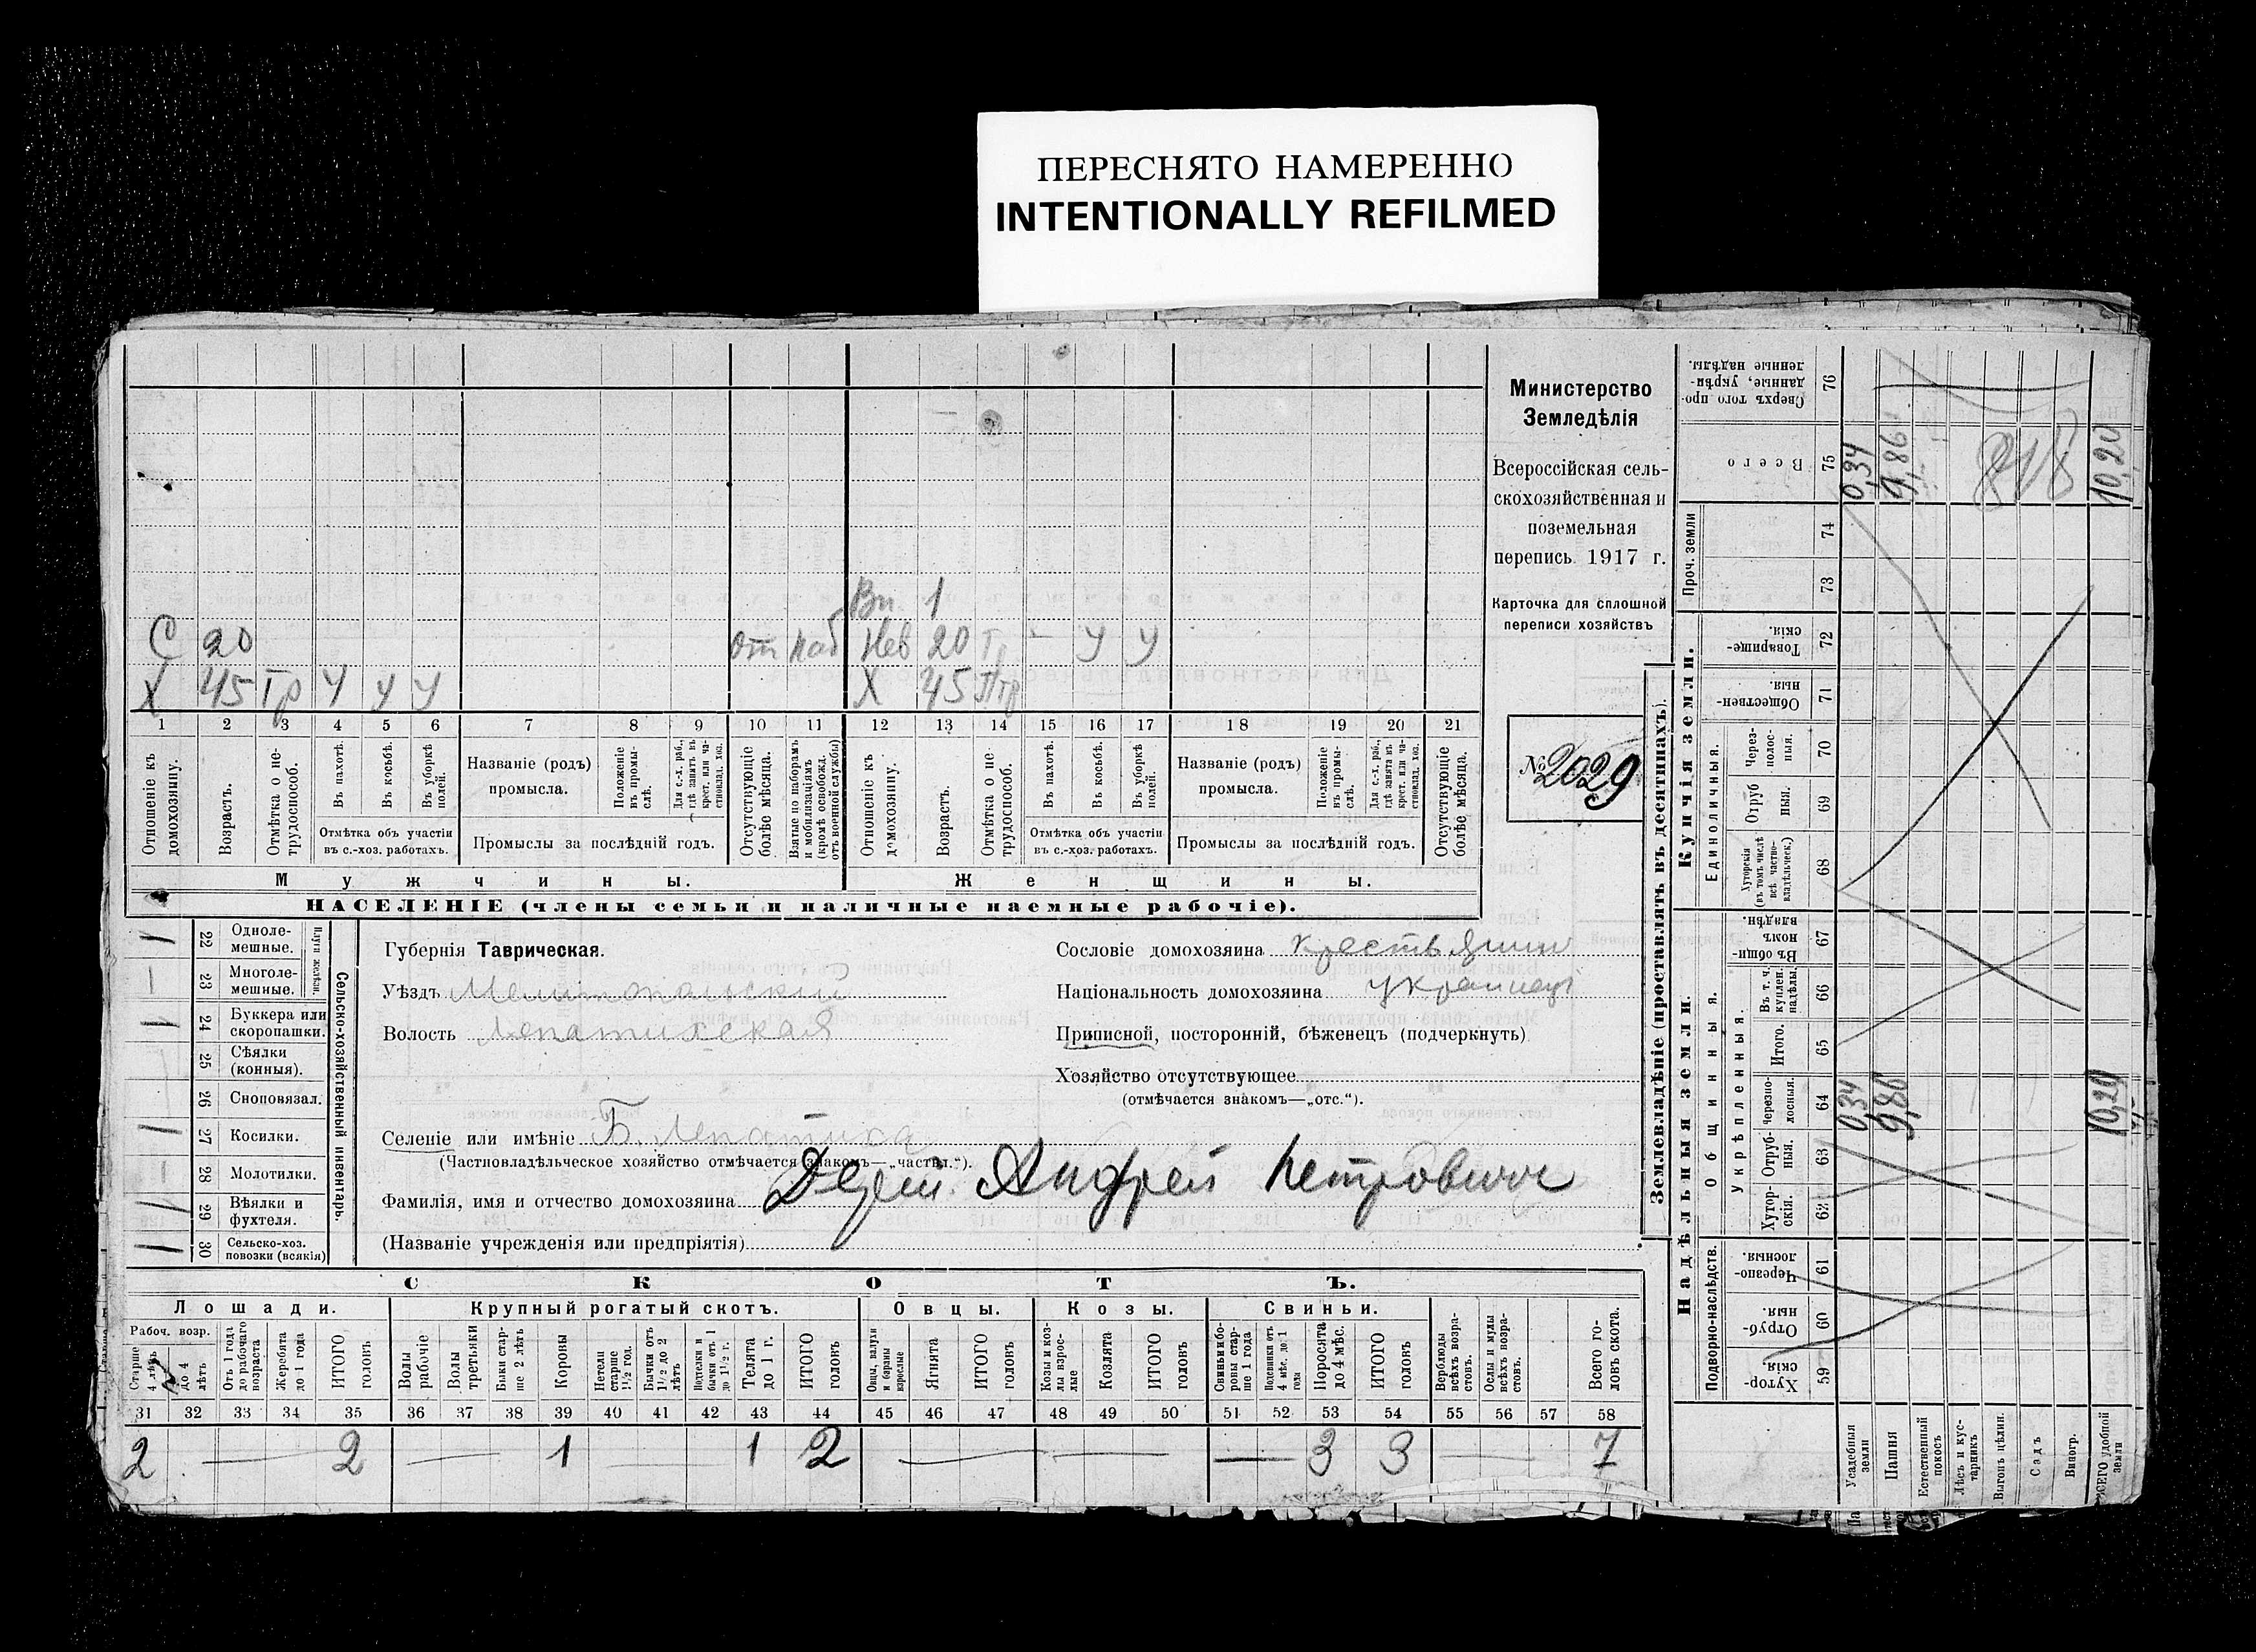 ПЕРЕСНЯТО НАМЕРЕННО
INTENTIONALLY REFILMED
Министерство
Земледѣлія
Всероссійская сель-
скохозяйственная и
поземельная
перепись 1917 г.
Карточка для сплошной
переписи хозяйствъ
№ 2029
Вн 1
С 20 От Наб Нев 20 Гр - У У
Х 45 Гр У У У Х 45
1 2 3 4 5 6 7 8 9 10 11 12 13 14 15 16 17 18 19 20 21
Отношеніе къ домохозяину.
Возрастъ.
Отмѣтка о не-трудоспособ.
Въ пахотѣ.
Въ косьбѣ.
Въ уборкѣ полей.
Отмѣтка объ участіи
въ с.-хоз. работахъ.
Названіе (родъ)
промысла.
Положеніе въ промы-слѣ.
Для с.-х. раб., гдѣ занятъ въ крест. или ча-стновлад. хоз.
Промыслы за послѣдній годъ.
Отсутствующіе болѣе мѣсяца.
Взятые по наборамъ и мобилизаціямъ (кромѣ освобожд. отъ военной службы)
Отношеніе къ домохозяину.
Возрастъ.
Отмѣтка о не-трудоспособ.
Въ пахотѣ.
Въ косьбѣ.
Въ уборкѣ полей.
Отмѣтка объ участіи
въ с.-хоз. работахъ.
Названіе (родъ)
промысла.
Положеніе въ промы-слѣ.
Для с.-х. раб., гдѣ занята въ крест. или ча-стновлад. хоз.
Промыслы за послѣдній годъ.
Отсутствующіе болѣе мѣсяца.
Мужчины. Женщины.
НАСЕЛЕНІЕ (члены семьи и наличные наемные рабочіе).
Сельско-хозяйственный инвентарь.
Плуги желѣзн.
1 22 Одноле-мешные.
1 23 Многоле-мешные.
1 24 Буккера или скоропашки.
25 Сѣялки (конныя).
26 Сноповязал.
1 27 Косилки.
1 28 Молотилки.
1 29 Вѣялки и фухтеля.
1 30 Сельско-хоз. повозки (всякія)
Губернія Таврическая.
Уѣздъ Мелитопальский
Волость Лепатихская
Селеніе или имѣніе Б. Лепатиха
(Частновладѣльческое хозяйство отмѣчается знакомъ—„частвл.“).
Фамилія, имя и отчество домохозяина Андрей Петрович
(Названіе учрежденія или предпріятія)
Сословіе домохозяина крестьянин
Національность домохозяина украинец
Приписной, посторонній, бѣженецъ (подчеркнуть)
Хозяйство отсутствующее
(отмѣчается знакомъ—„отс.“).
СКОТЪ.
Лошади. Крупный рогатый скотъ. Овцы. Козы. Свиньи.
Рабоч. возр.
Старше 4 лѣтъ
до 4 лѣтъ
Отъ 1 года до рабочаго возраста
Жеребята до 1 года
ИТОГО головъ
Волы рабочіе
Волы третьяки
Быки стар-ше 2 лѣтъ
Коровы
Нетели старше 1½ год.
Бычки отъ 1½ до 2 лѣтъ
Подтелки и бычки отъ 1 до 1½ г.
Телята до 1 г.
ИТОГО головъ
Овцы, валухи и бараны взрослые
Ягнята
ИТОГО головъ
Козы и коз-лы взрос-лые
Козлята
ИТОГО головъ
Свиньи и бо-ровы стар-ше 1 года
Подсвинки отъ 4 мѣс. до 1 года
Поросята до 4 мѣс.
ИТОГО головъ
Верблюды всѣхъ возра-стовъ.
Ослы и мулы всѣхъ возра-стовъ.
Всего го-ловъ скота.
31 32 33 34 35 36 37 38 39 40 41 42 43 44 45 46 47 48 49 50 51 52 53 54 55 56 57 58
2 — 2 — 1 — 1 2 — — — 3 3 — 7
Землевладѣніе (проставлять въ десятинахъ).
Надѣльныя земли. Купчія земли. Проч. земли
Подворно-наслѣдств. Общинныя. Укрѣпленныя. Единоличныя.
Хутор-скія. 59
Отруб-ныя. 60
Черезпо-лосныя. 61
Хутор-скія. 62
Отруб-ныя. 63
Черезпо-лосныя. 64 0,34 9,86 10,20
Итого. 65
Въ т. ч. куплен. надѣлы. 66
Въ общин-номъ владѣн. 67
Хуторскія (въ томъ числѣ всѣ частно-владѣльческ.) 68
Отруб ныя. 69
Через-полос-ныя. 70
Обществен-ныя. 71
Товарище-скія. 72
73
74
Всего 75 0,34 9,86 818 10,20
Сверхъ того про-данные, укрѣп-ленные надѣлы. 76
Усадебныя земли
Пашня
Естественный покосъ
Лѣсъ и кус-тарникъ
Выгонъ цѣлин.
Садъ
Виногр.
ВСЕГО удобной земли